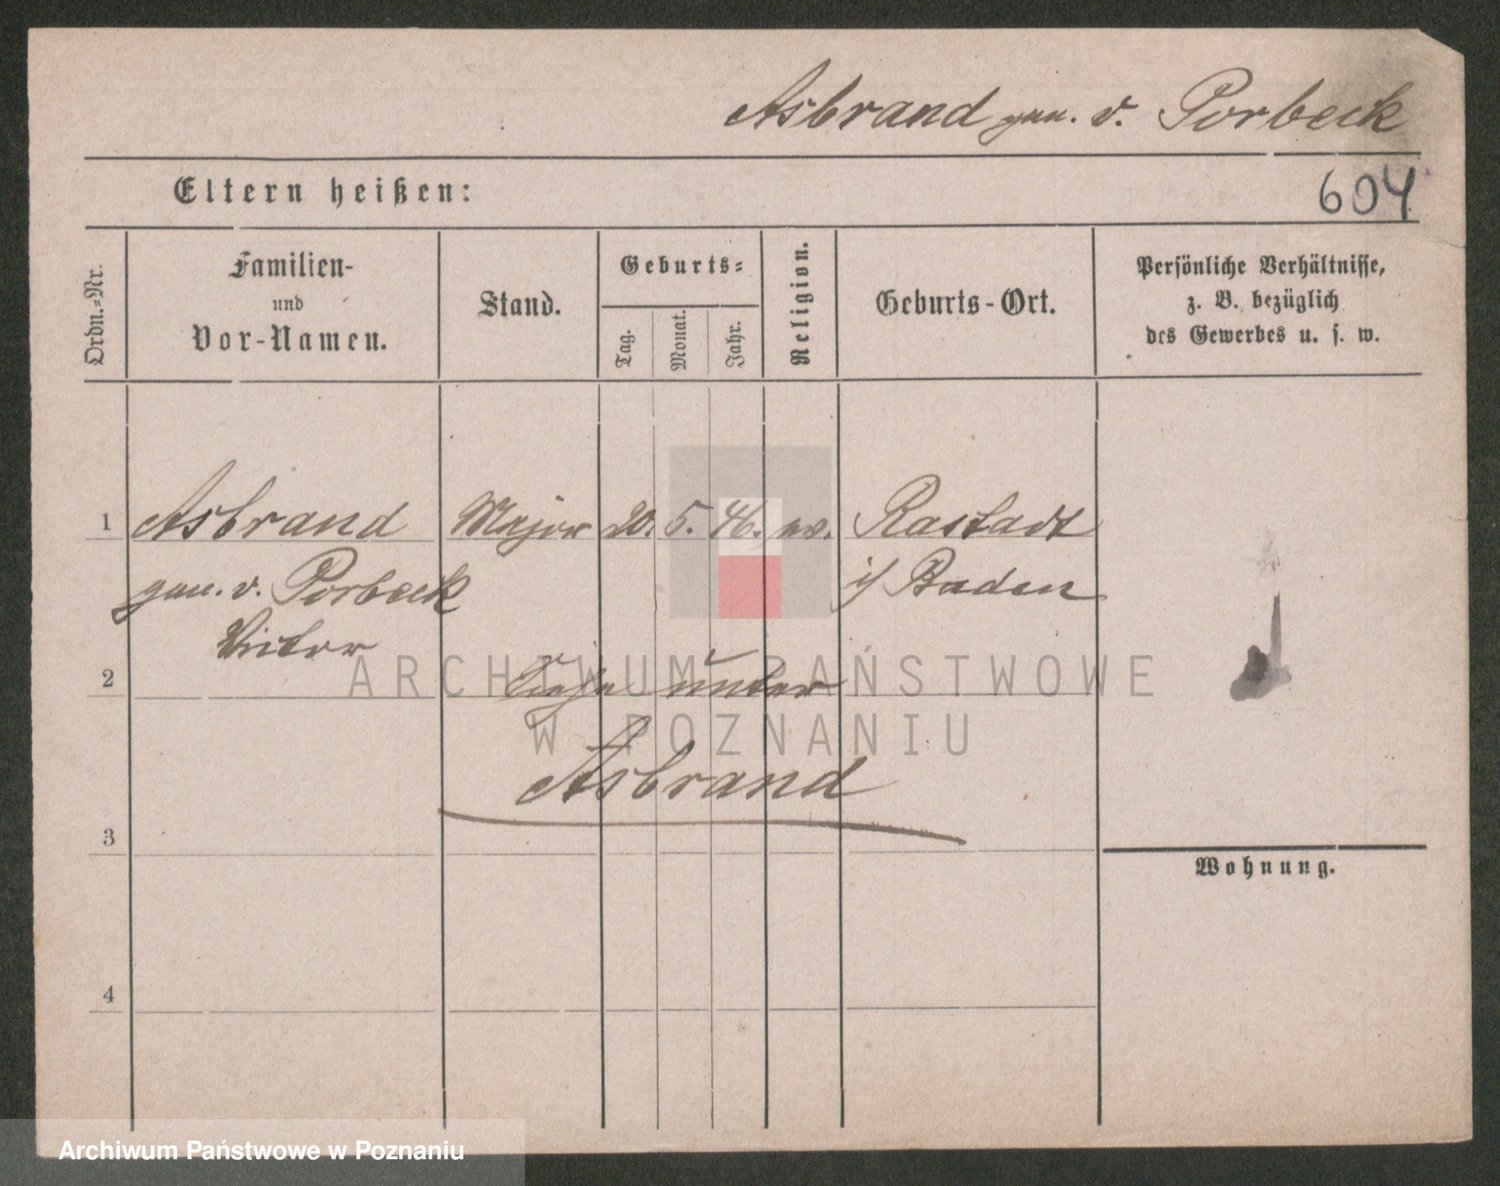 Asbrand gen. v. Porbeck
Eltern heißen:
604
Ordn.-Nr.
Familien-
und
Vor-Namen.
Stand.
Geburts-
Tag.
Monat.
Jahr.
Religion.
Geburts-Ort.
Persönliche Verhältnisse,
z. B. bezüglich
des Gewerbes u. s. w.
1 Asbrand Major 20. 5. 46. ev. Rastadt
gen. v. Porbeck i/ Baden
Victor
2 Siehe unter
ARCHIWUM PAŃSTWOWE
W POZNANIU
Asbrand
3
Wohnung.
4
Archiwum Państwowe w Poznaniu